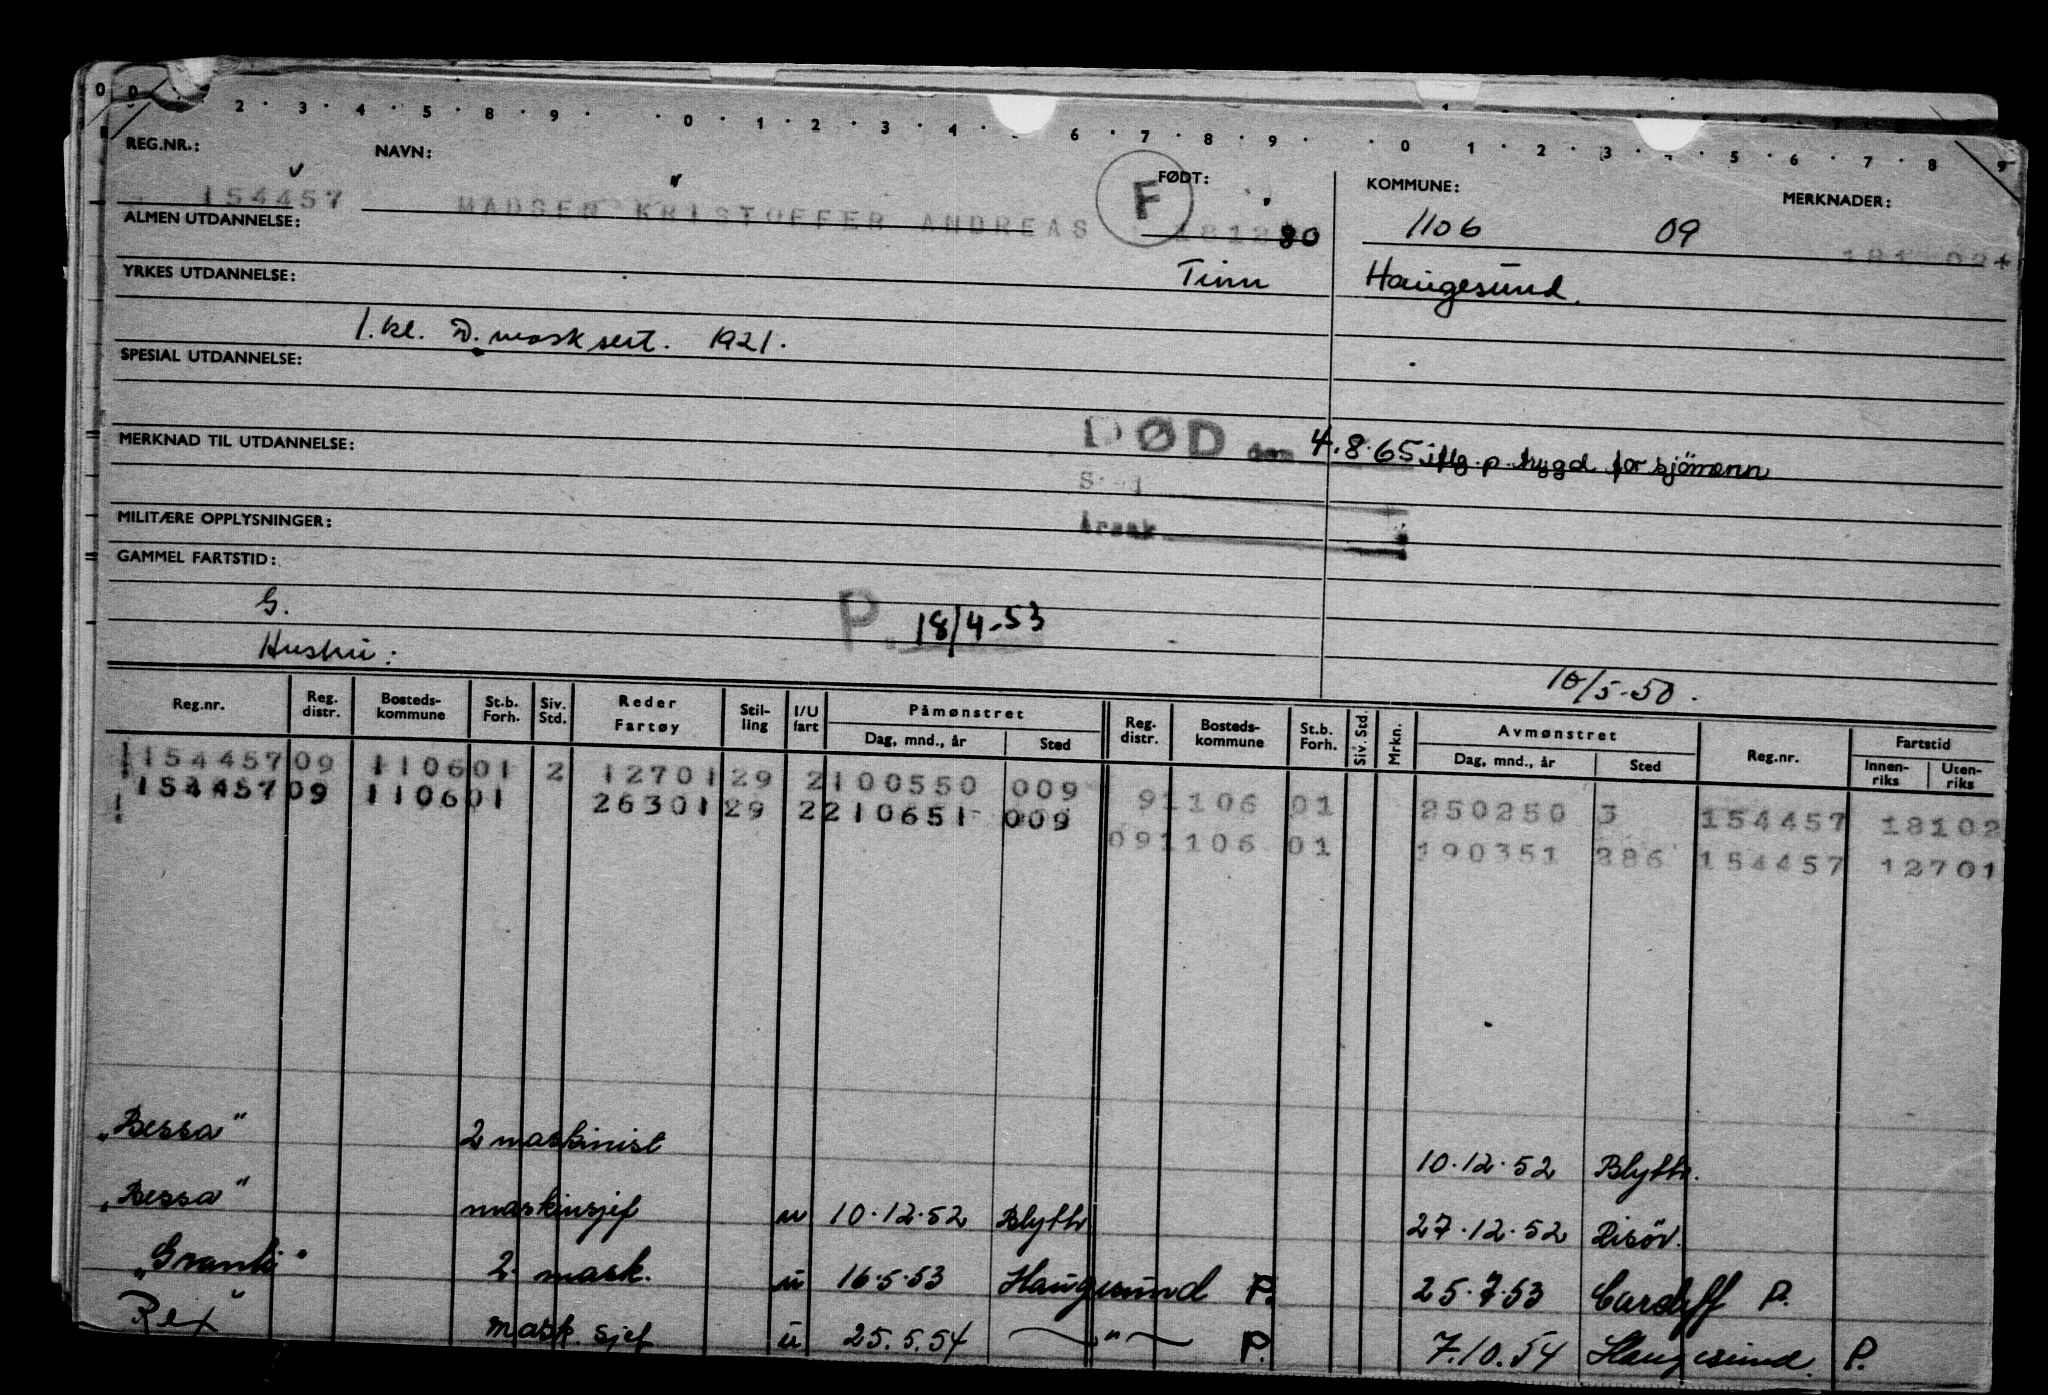 0 0 2 · 3 · 4 · 5 · 8 · 9 · · 0 · 1 · 2 · 3 · 4 · 6 · 7 · 8 · 9 · · 0 1 · 2 · 3 · 4 · 5 · 6 · 7 · 8 · 9
REG.NR.: NAVN: FØDT: KOMMUNE: MERKNADER:
154457 MADSEN KRISTOFFER ANDREAS F 90 1106 09
ALMEN UTDANNELSE:
YRKES UTDANNELSE: Tinn Haugesund.
1. kl. D. mask sert. 1921.
SPESIAL UTDANNELSE:
MERKNAD TIL UTDANNELSE: DØD den 4.8.65 iflg. p. trygd for sjömenn
Sted
MILITÆRE OPPLYSNINGER: Årsak
GAMMEL FARTSTID:
G. P. 18/4-53
Hustru: 10/5-50.
Reg.nr. Reg. distr. Bosteds-kommune St.b. Forh. Siv. Std. Reder Fartøy Stil-ling I/U fart Påmønstret Dag, mnd., år Sted Reg. distr. Bosteds-kommune St.b. Forh. Siv. Std. Mrkn. Avmønstret Dag, mnd., år Sted Reg.nr. Fartstid Innen-riks Uten-riks
154457 09 1106 01 2 12701 29 2 100550 009 91106 01 250250 3 154457 18102
154457 09 1106 01 26301 29 2 210651 009 091106 01 190351 386 154457 12701
„Bessa" 2 maskinist 10.12.52 Blyth.
„Bessa" maskinsjef u 10.12.52 Blyth 27.12.52 Risör.
2. mask. u 16.5.53 Haugesund P. 25.7.53 Cardiff P.
Rex" mask. sjef u 25.5.54 — " — P. 7.10.54 Haugesund. P.